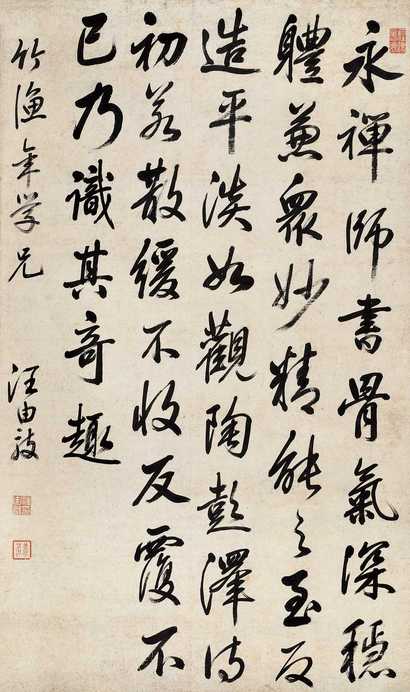 永禪師書骨氣深穩
體兼眾妙精能之至反
造平淡如觀陶彭澤詩
初若散緩不收反覆不
已乃識其奇趣
竹漁年學兄
汪由敦